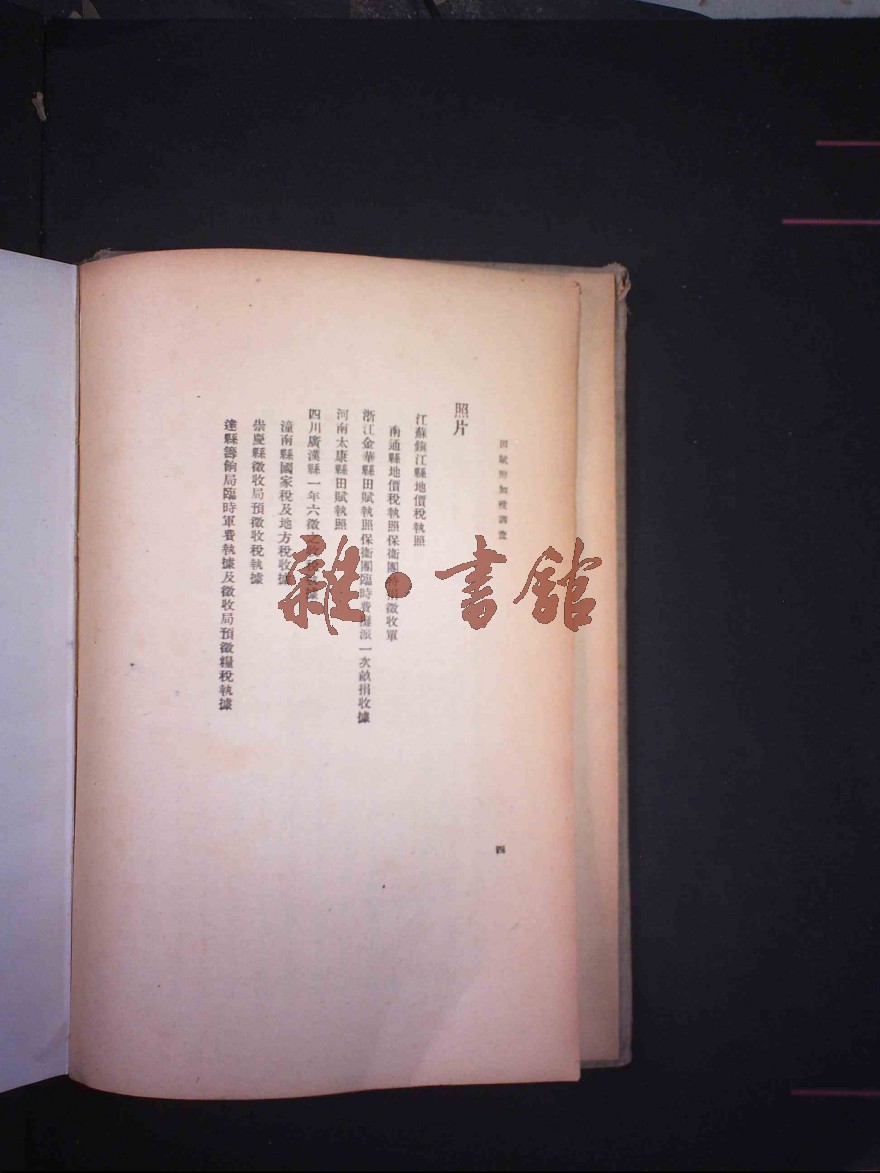 田賦附加稅調查
四
照片
江蘇鎮江縣地價稅執照
南通縣地價稅執照保衛團畝捐徵收單
浙江金華縣田賦執照保衛團臨時費攤派一次畝捐收據
河南太康縣田賦執照
四川廣漢縣一年六徵之
潼南縣國家稅及地方稅收據
崇慶縣徵收局預徵收稅執據
達縣籌餉局臨時軍費執據及徵收局預徵糧稅執據
雜·書館